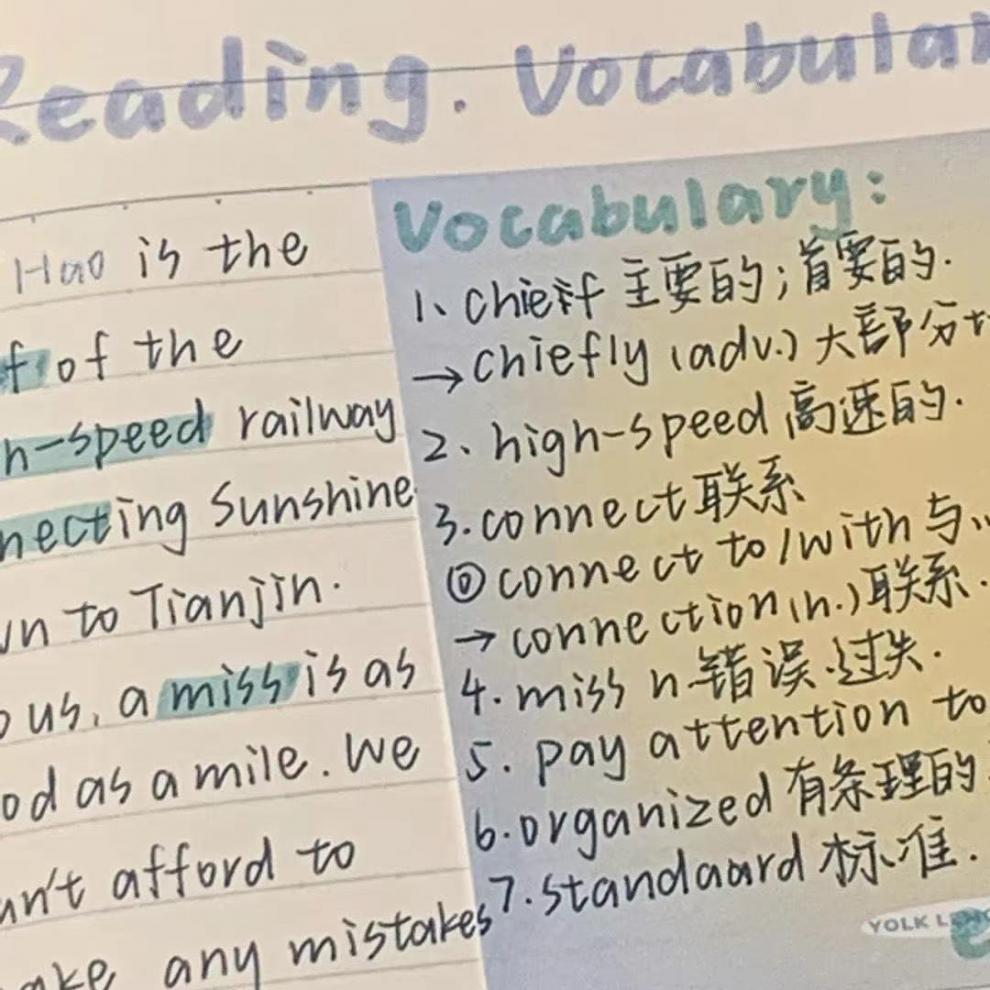 Reading. Vocabular
Hao is the
f of the
h-speed railway
necting Sunshine
wn to Tianjin.
o us, a miss is as
od as a mile. We
an't afford to
ake any mistakes
Vocabulary:
1、chief 主要的；首要的.
→chiefly (adv.) 大部分地
2、high-speed 高速的.
3.connect 联系
⓪connect to/with 与...
→ connection (n.) 联系.
4. miss n.错误.过失.
5. pay attention to
6.organized 有条理的
7.standaard 标准.
YOLK LENG